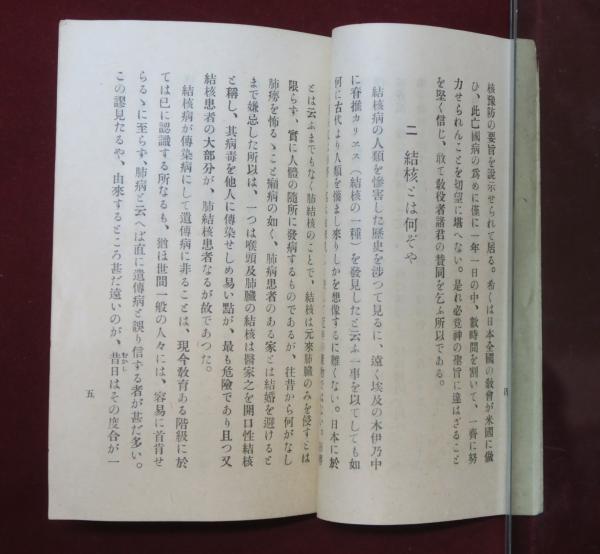 核豫防の要旨を說示せられて居る。希くは日本全國の敎會が米國に倣
ひ、此亡國病の爲めに僅に一年一日の中、數時間を割いて、一齊に努
力せられんことを切望に堪へない。是れ必竟神の聖旨に違はざること
を堅く信じ、敢て敎役者諸君の贊同を乞ふ所以である。
二 結核とは何ぞや
結核病の人類を慘害した歷史を涉つて見るに、遠く埃及の木伊乃中
に脊推カリエス(結核の一種)を發見したと云ふ一事を以てしても如
何に古代より人類を惱まし來りしかを想像するに難くない。日本に於
四
とは云ふまでもなく肺結核のことで、結核は元來肺臟のみを侵すとは
限らず、實に人體の隨所に發病するものであるが、往昔から何がなし
肺癆を怖るゝこと癩病の如く、肺病患者のある家とは結婚を避けると
まで嫌忌した所以は、一つは喉頭及肺臟の結核は醫家之を開口性結核
と稱し、其病毒を他人に傳染せしめ易い點が、最も危險であり且つ又
結核患者の大部分が、肺結核患者なるが故であつた。
結核病が傳染病にして遺傳病に非ることは、現今敎育ある階級に於
ては已に認識する所なるも、猶ほ世間一般の人々には、容易に首肯せ
らるゝに至らず、肺病と云へば直に遺傳病と誤り信ずる者が甚だ多い。
この謬見たるや、由來するところ甚だ遠いのが、昔日はその度合が一
五